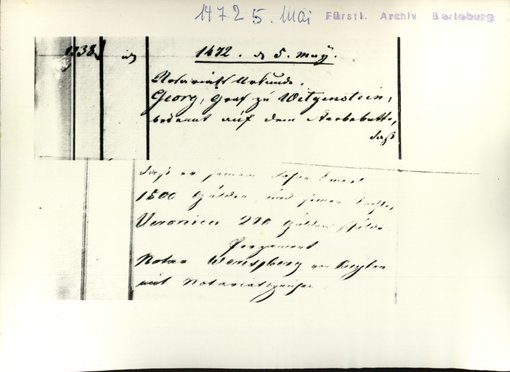 1472 5. Mai Fürstl. Archiv Berleburg
1738.
1472. d 5. May.
Notariats Urkunde.
Georg, Graf zu Witgenstein,
bekennt auf dem Sterbebette,
daß
daß er seinem Sohn
1500 Gulden und seiner Tochter
Veronica 200 Gulden
Pergament
Notar von
mit Notariatszeichen